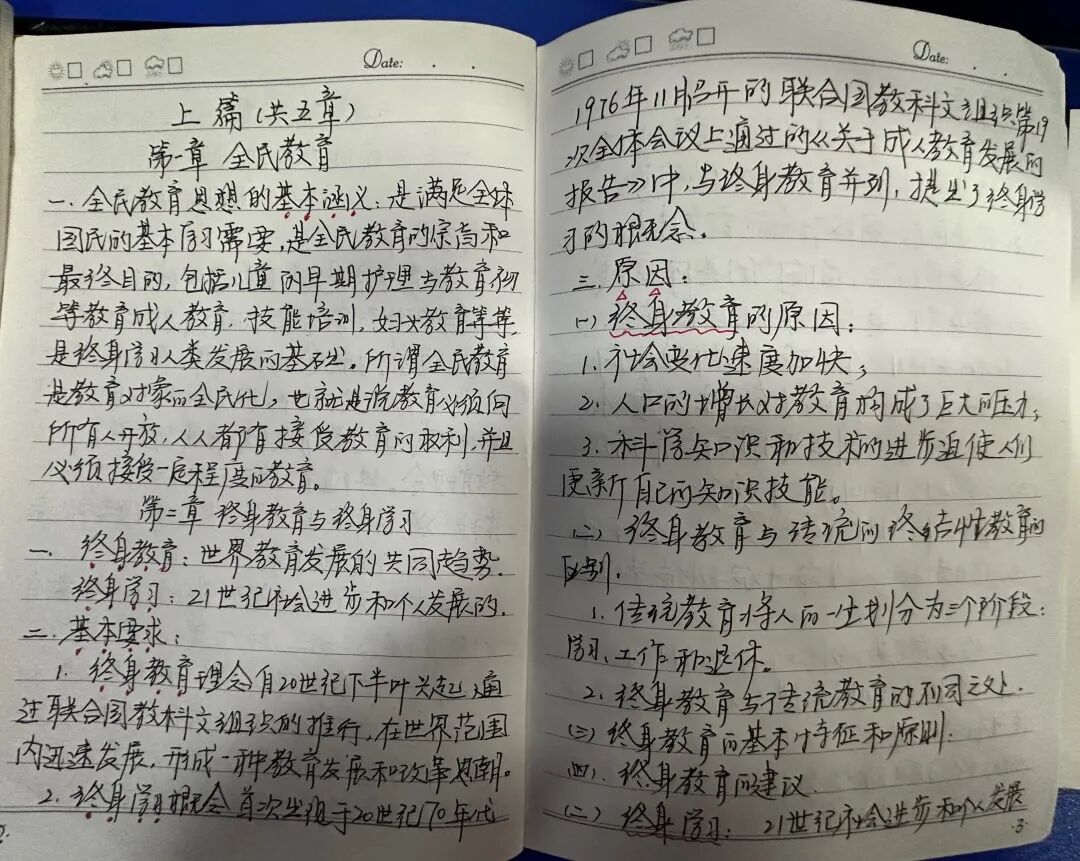 Date: . .
上篇(共五章)
第一章 全民教育
一.全民教育思想的基本涵义:是满足全体
国民的基本学习需要,是全民教育的宗高和
最终目的,包括儿童的早期护理与教育初
等教育成人教育.技能培训,妇女教育等等,
是终身学习人类发展的基础。所谓全民教育
是教育对象的全民化,也就是说教育必须向
所有人开放,人人都有接受教育的权利,并且
必须接受一定程度的教育。
第二章 终身教育与终身学习
一.终身教育:世界教育发展的共同趋势.
终身学习:21世纪社会进步和个人发展的.
二.基本要求:
1.终身教育理念自20世纪下半叶关起,通
过联合国教科文组织的推行,在世界范围
内迅速发展,形成一种教育发展和改革思潮。
2.终身学习概念首次出现于20世纪70年代
Date: . .
1976年11月召开的联合国教科文组织第19
次全体会议上通过的《关于成人教育发展的
报告》中,与终身教育并列,提出了终身学
习的概念。
三.原因:
(一)终身教育的原因:
1.社会变化速度加快;
2.人口的增长对教育构成了巨大的压力;
3.科学知识和技术的进步迫使人们
更新自己的知识技能。
(二)终身教育与传统的终结性教育的
区别.
1.传统教育将人的一生划分为三个阶段:
学习、工作和退休。
2.终身教育与传统教育的不同之处.
(三)终身教育的基本特征和原则.
(四).终身教育的建议.
(二)终身学习:21世纪社会进步和个人发展
·3·